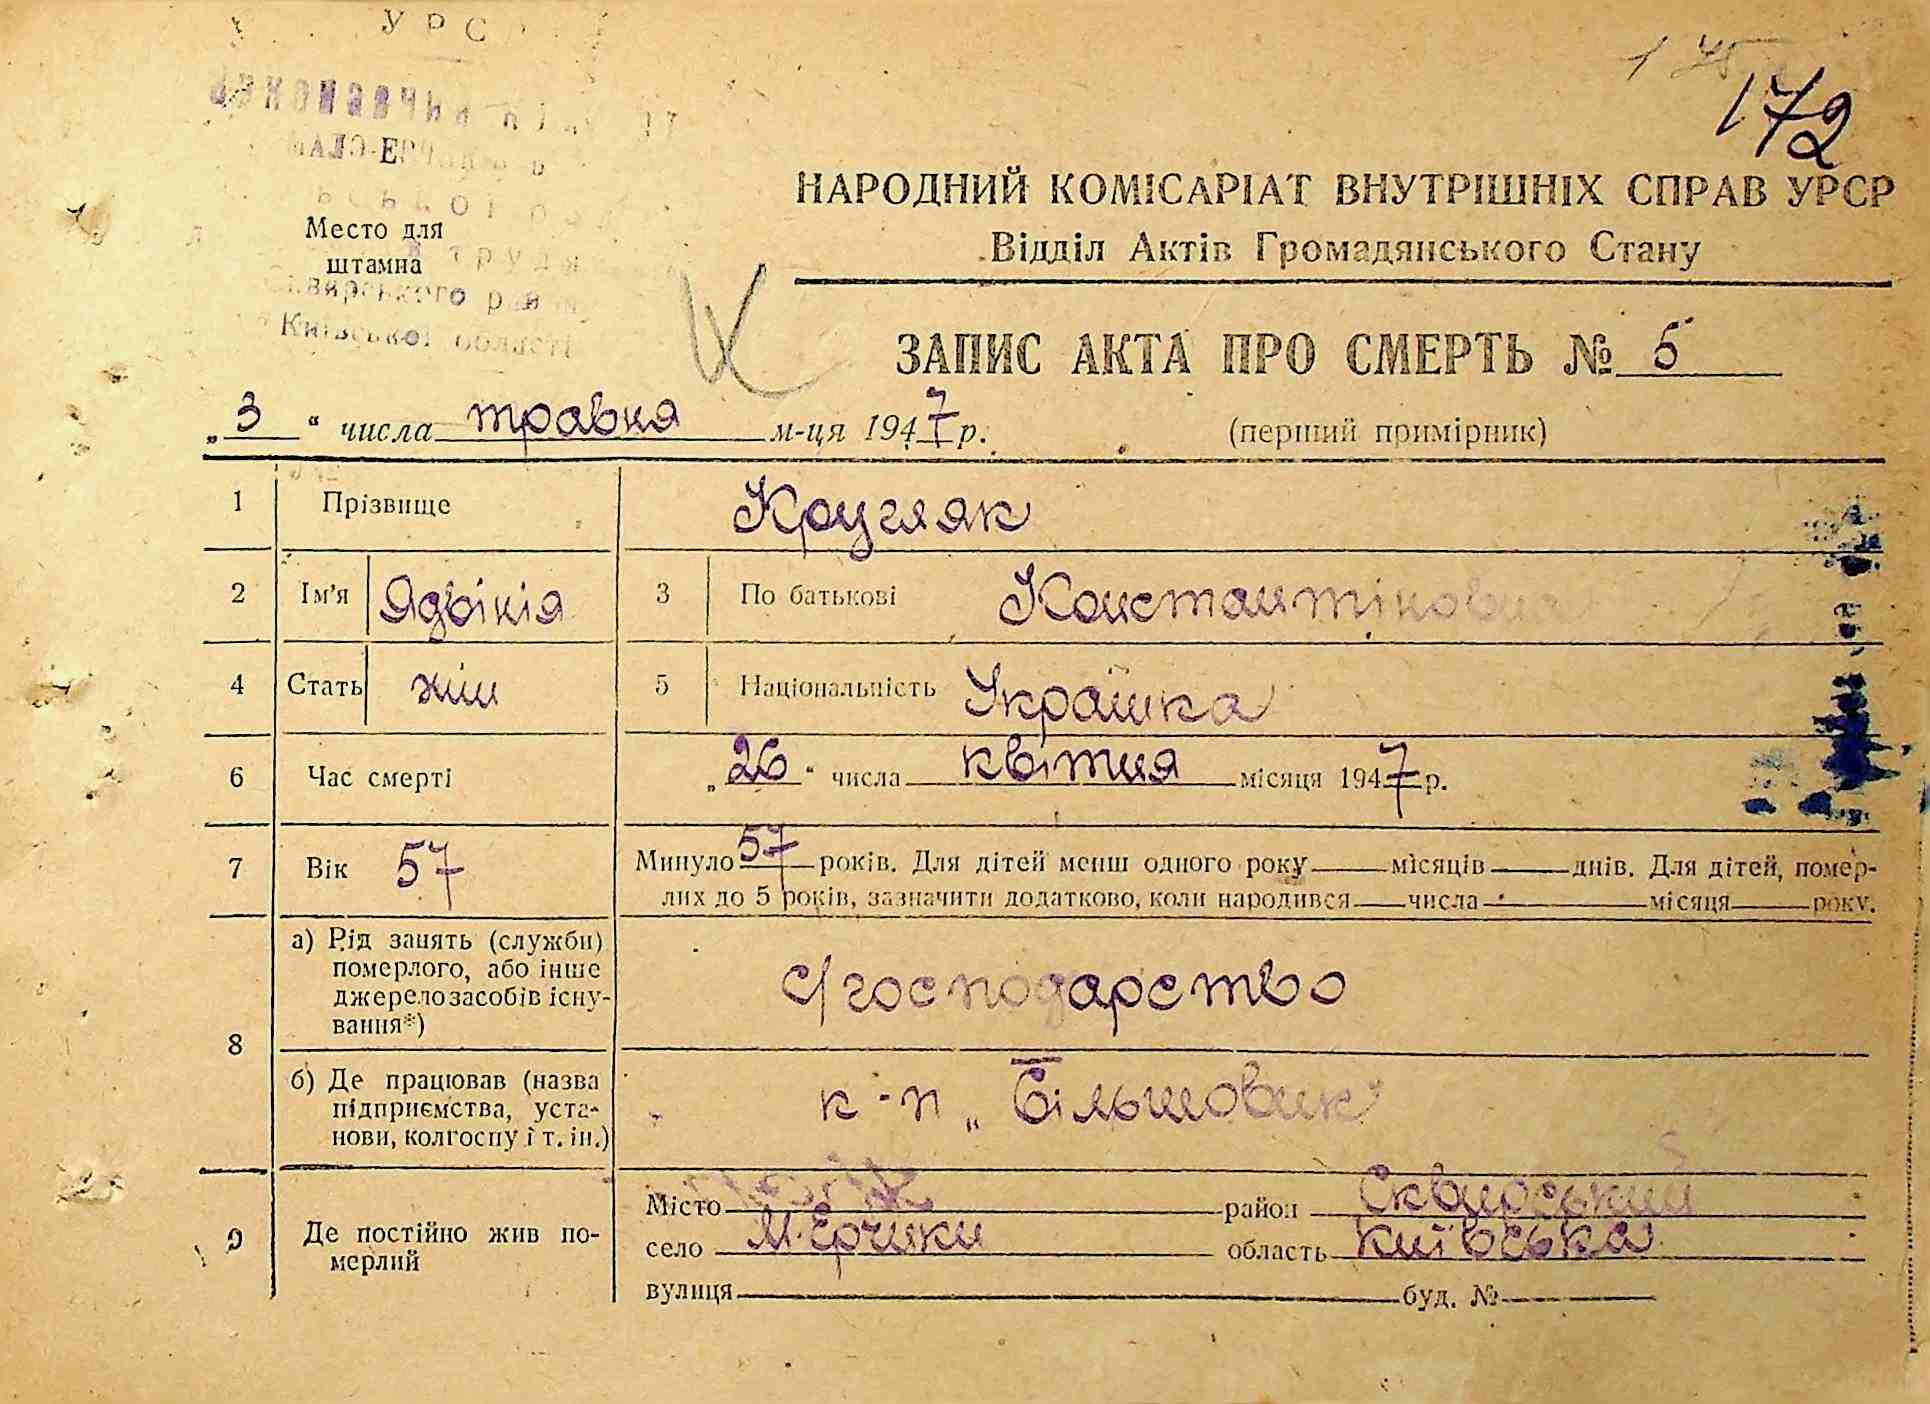 УРС
172
НАРОДНИЙ КОМІСАРІАТ ВНУТРІШНІХ СПРАВ УРСР
Відділ Актів Громадянського Стану
Место для
штампа
Київської області
ЗАПИС АКТА ПРО СМЕРТЬ № 5
„3“ числа травня м-ця 1947 р. (перший примірник)
1 Прізвище Кругляк
2 Ім'я Ядвінія 3 По батькові Константіновна
4 Стать жін 5 Національність Українка
6 Час смерті „26“ числа квітня місяця 1947 р.
7 Вік 57 Минуло 57 років. Для дітей менш одного року місяців днів. Для дітей, помер-
лих до 5 років, зазначити додатково, коли народився числа місяця року.
8 а) Рід занять (служби)
померлого, або інше
джерело засобів існу-
вання*)
с/господарство
б) Де працював (назва
підприємства, уста-
нови, колгоспу і т. ін.)
к-п „Більшовик“
9 Де постійно жив по-
мерлий
Місто район Сквирський
село М-Єрчики область Київська
вулиця буд. №